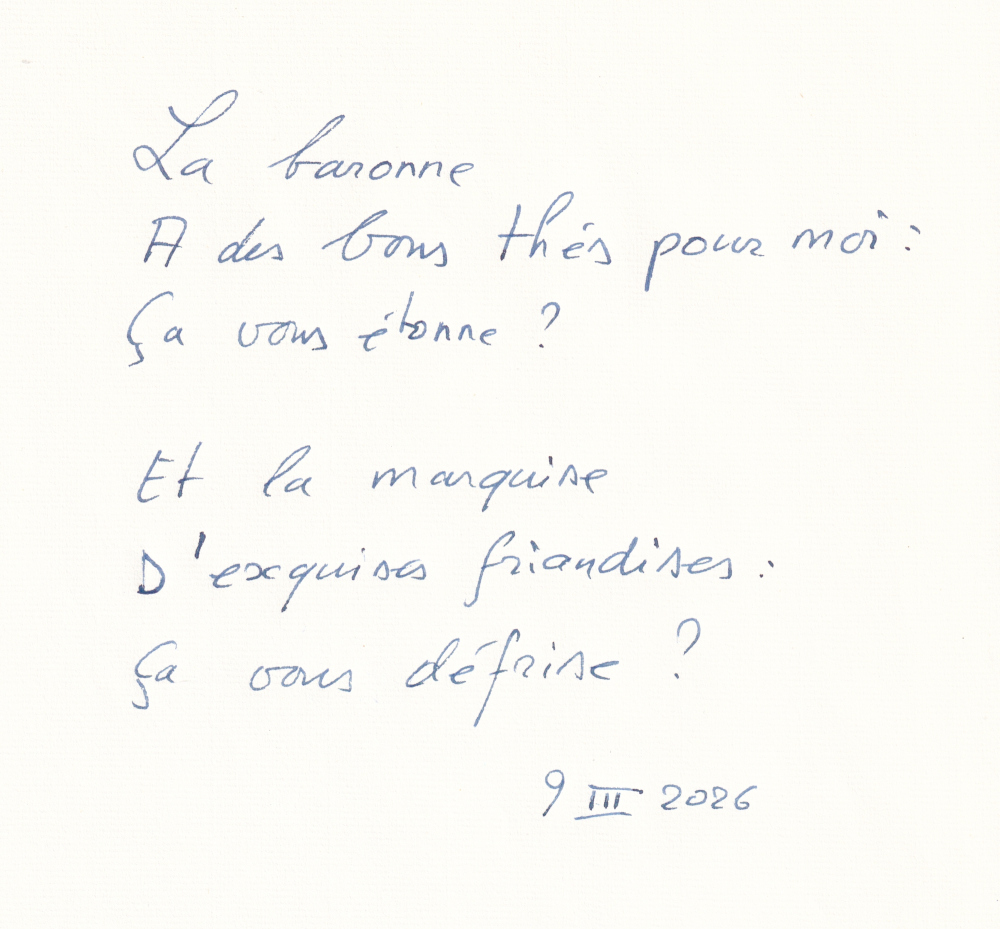 La baronne
A des bons thés pour moi :
Ça vous étonne ?
Et la marquise
D'exquises friandises :
Ça vous défrise ?
9 III 2026